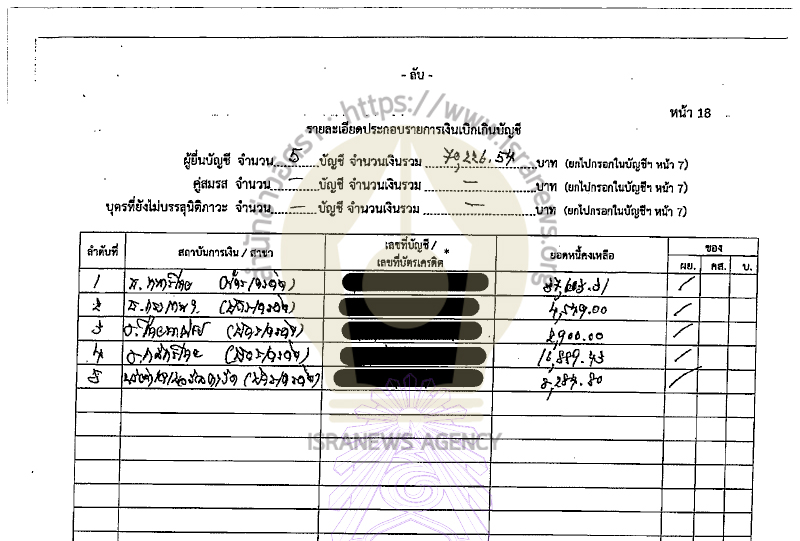 - ลับ -
หน้า 18
สำนักข่าวอิศรา : https://www.isranews.org
รายละเอียดประกอบรายการเงินเบิกเกินบัญชี
ผู้ยื่นบัญชี จำนวน 5 บัญชี จำนวนเงินรวม 70,226.54 บาท (ยกไปกรอกในบัญชีฯ หน้า 7)
คู่สมรส จำนวน - บัญชี จำนวนเงินรวม - บาท (ยกไปกรอกในบัญชีฯ หน้า 7)
บุตรที่ยังไม่บรรลุนิติภาวะ จำนวน - บัญชี จำนวนเงินรวม - บาท (ยกไปกรอกในบัญชีฯ หน้า 7)
ลำดับที่ สถาบันการเงิน / สาขา เลขที่บัญชี / เลขที่บัตรเครดิต * ยอดหนี้คงเหลือ ของ
ผย. คส. บ.
1 (บัตรเครดิต) /
2 (บัตรเครดิต) 4,549.00 /
3 (บัตรเครดิต) 2,900.00 /
4 ธ.กสิกรไทย (บัตรเครดิต) /
5 (บัตรเครดิต) 8,284.80 /
ISRANEWS AGENCY